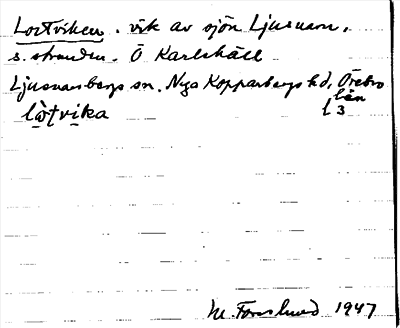 Lortviken. vik av sjön Ljusnarn,
s. stranden. Ö Karlshäll
Ljusnarsbergs sn. Nya Kopparbergs hd, Örebro
län
lo̤ṭvi̤ka
l 3
M. Forslund 1947